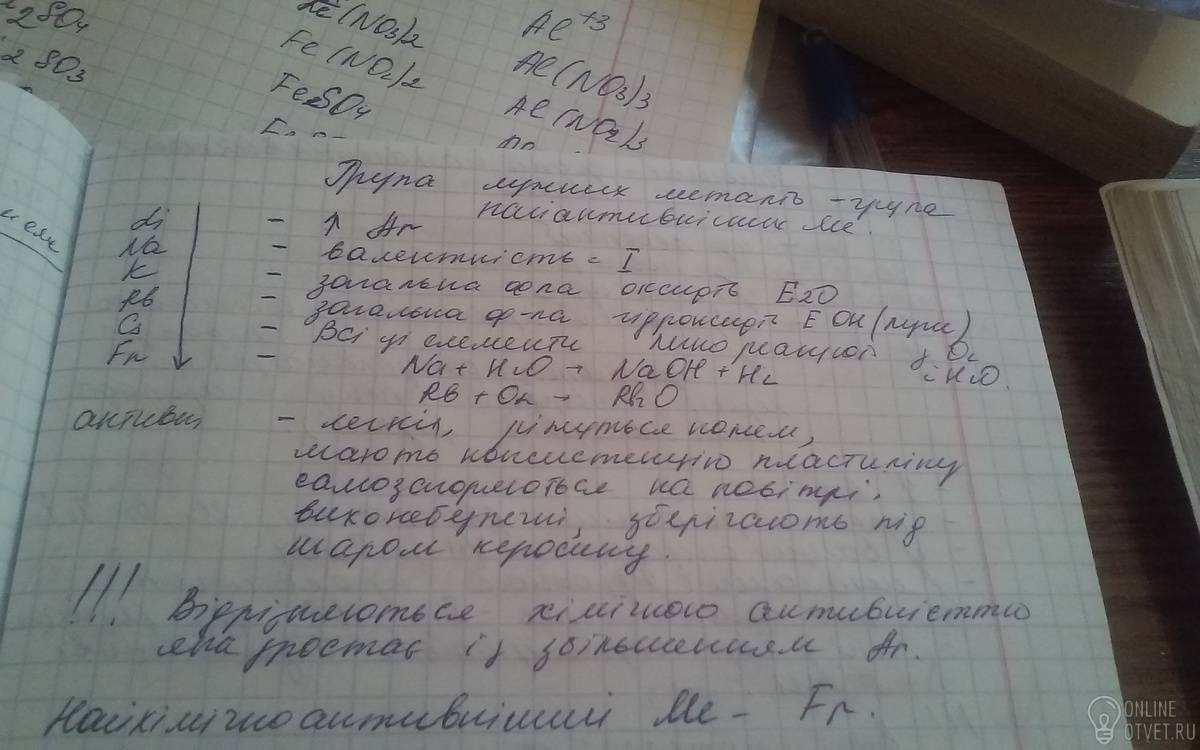 2SO4
2SO3
Fe(NO3)2
Fe(NO2)2
FeSO4
Al+3
Al(NO3)3
Al(NO2)3
Група лужних металів - група
найактивніших Ме.
Li
Na
K
Rb
Cs
Fr
активн
- ↑ Ar
- валентність - I
- загальна ф-ла оксидів E2O
- загальна ф-ла гідроксидів EOH (луги)
- Всі ці елементи реакції з O2
і H2O.
- Na + H2O → NaOH + H2
Rb + O2 → Rb2O
- легкі, ріжуться ножем,
мають консистенцію пластиліну
самозагоряються на повітрі.
зберігають під
шаром керосину.
!!! Відрізняються хімічною активністтю
яка зростає із збільшенням Ar.
Найхімічноактивніший Ме - Fr.
ONLINE
OTVET.RU